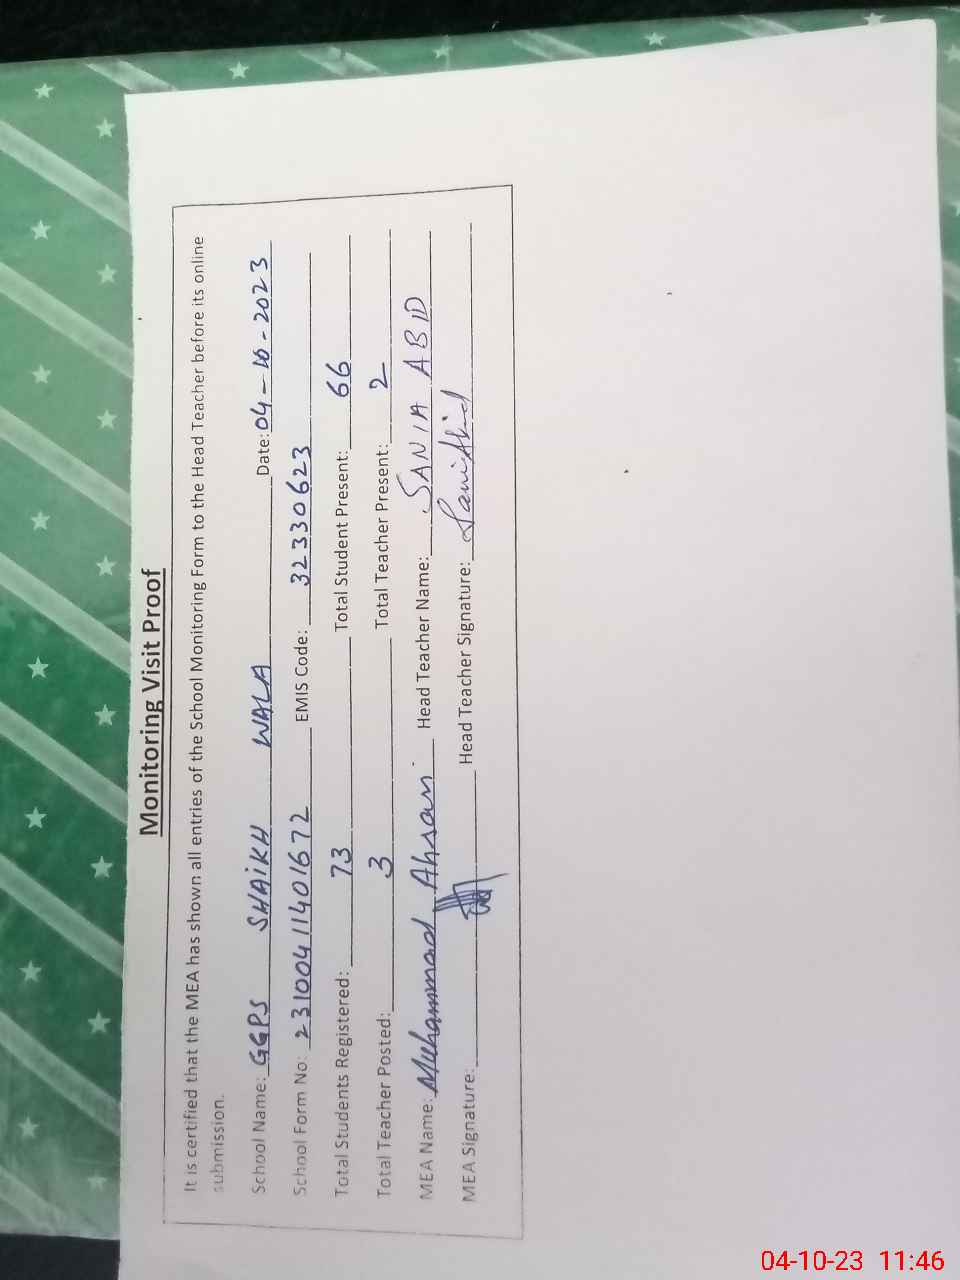 Monitoring Visit Proof
It is certified that the MEA has shown all entries of the School Monitoring Form to the Head Teacher before its online
submission.
School Name: GGPS SHAIKH WALA Date: 04-10-2023
School Form No: 23100411401672 EMIS Code: 32330623
Total Students Registered: 73 Total Student Present: 66
Total Teacher Posted: 3 Total Teacher Present: 2
MEA Name: Muhammad Ahsan Head Teacher Name: SANIA ABID
MEA Signature: Head Teacher Signature: Sania Abid
04-10-23 11:46